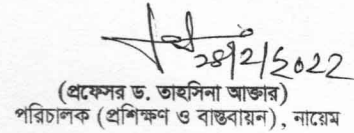 28/2/2022
(প্রফেসর ড. তাহসিনা আক্তার)
পরিচালক (প্রশিক্ষণ ও বাস্তবায়ন), নায়েম